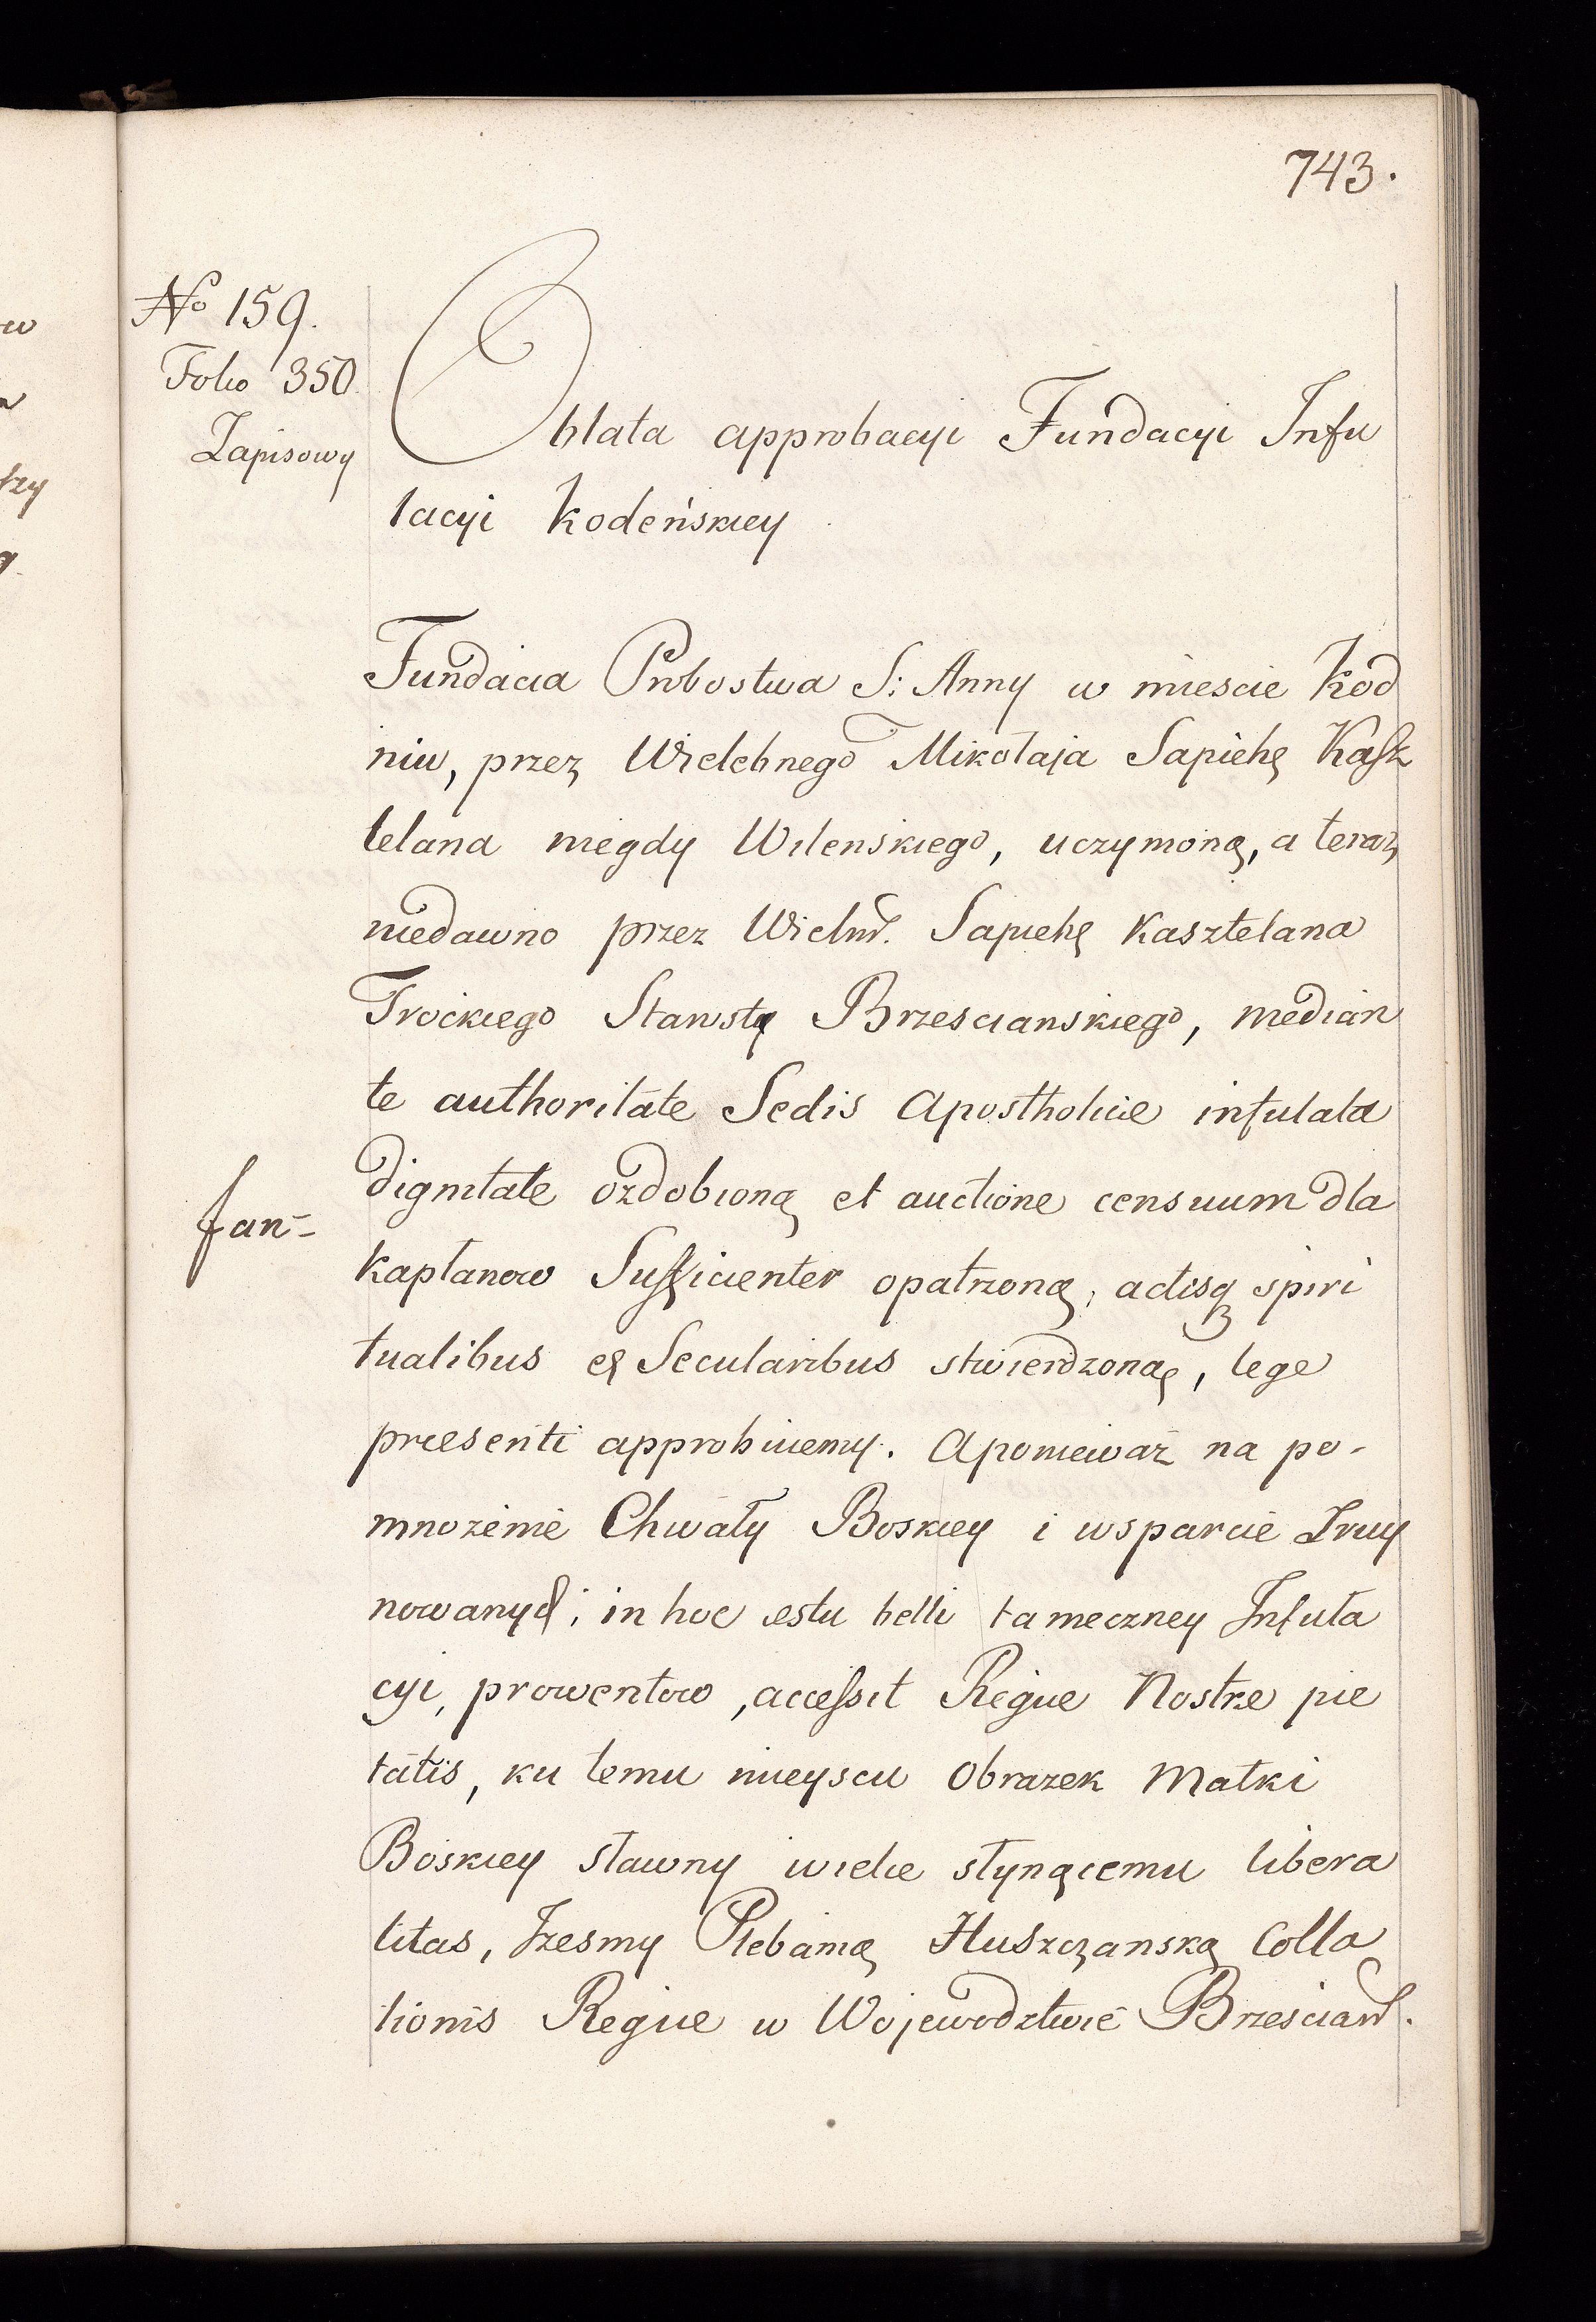 743.
No 159.
Folio 350
Zapisowy
Oblata approbacyi Fundacyi Infu
lacyi Kodeńskiey
Fundacia Probostwa S: Anny w miescie Kod
niu, przez Wielebnego Mikołaja Sapiehę Kasz
telana niegdy Wilenskiego, uczymoną, a teraz
niedawno przez Wielm. Sapiehę Kasztelana
Trockiego Starostę Brzescianskiego, median
te authoritate Sedis Apostholicæ infulata
dignitate ozdobioną et auctione censuum dla
fan=
kapłanow Sufficienter opatrzoną, actisq spiri
tualibus et Secularibus stwierdzoną, lege
præsenti approbuiemy. Aponieważ na po-
mnożenie Chwały Boskiey i wsparcie Zruy
nowanych; in hoc æstu belli tameczney Infuła
cyi, prowentow, accessit Regiæ Nostræ pie
tatis, ku temu mieyscu Obrazek Matki
Boskiey sławny wielce słynącemu libera
litas, Jżesmy Plebanią Huszczanską Colla
tionis Regiæ w Wojewodztwie Brześcian.